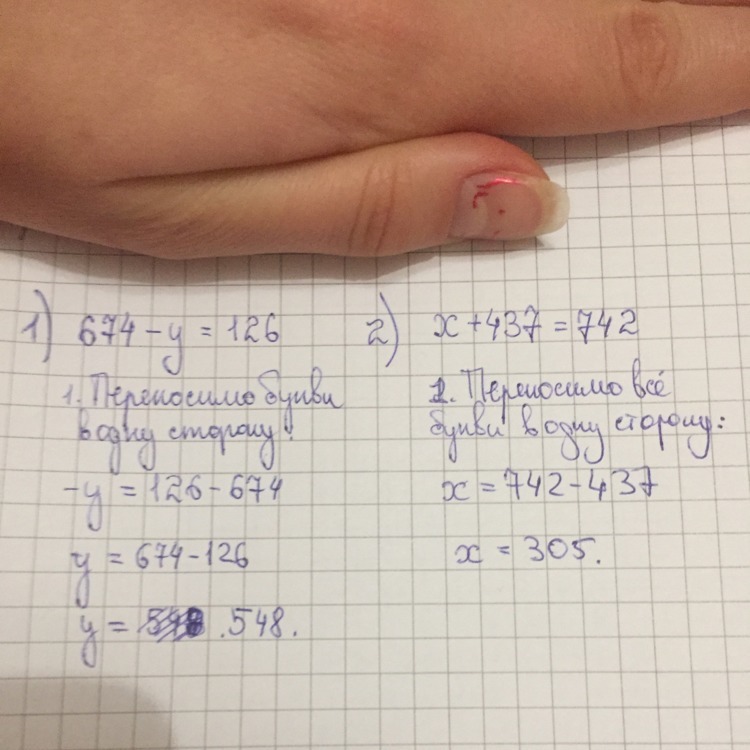 1) 674 - y = 126
1. Переносимо букви
в одну сторону:
-y = 126 - 674
y = 674 - 126
y = 548.
2) x + 437 = 742
1. Переносимо всё
букви в одну сторону:
x = 742 - 437
x = 305.